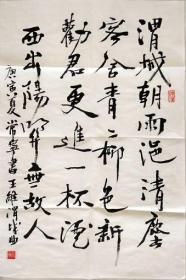 渭城朝雨浥清塵
客舍青々柳色新
勸君更進一杯酒
西出陽關無故人
庚寅夏常寧書王維渭城曲